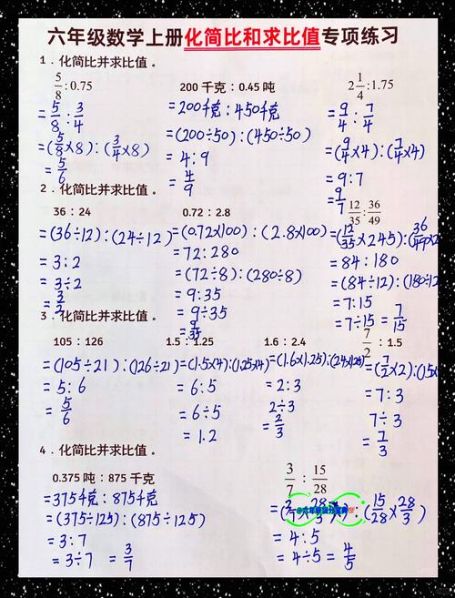 六年级数学上册化简比和求比值专项练习
1.化简比并求比值。
5/8:0.75
=5/8:3/4
=(5/8×8):(3/4×8)
=5/6
200千克:0.45吨
=200千克:450千克
=(200÷50):(450÷50)
=4:9
=4/9
2 1/4:1.75
=9/4:7/4
=(9/4×4):(7/4×4)
=9:7
=9/7
2.化简比并求比值。
36:24
=(36÷12):(24÷12)
=3:2
=3÷2
=3/2
0.72:2.8
=(0.72×100):(2.8×100)
=72:280
=(72÷8):(280÷8)
=9:35
=9÷35
=9/35
12/35:36/49
=(12/35×245):(36/49×2
=84:180
=(84÷12):(180÷12
=7:15
=7÷15=7/15
3.化简比并求比值。
105:126
=(105÷21):(126÷21)
=5:6
=5/6
1.5:1.25
=(1.5×4):(1.25×4)
=6:5
=6÷5
=1.2
1.6:2.4
=(1.6×1.25):(2.4×1.25)
=2:3
2÷3
=2/3
7/2:1.5
=(7/2×2):(1.5×
=7:3
7÷3
=7/3
4.化简比并求比值。
0.375吨:875千克
=375千克:875千克
=(375÷125):(875÷125)
=3:7
=3÷7=3/7
3/7:15/28
:(15/28×28/3)
=4:5
=4÷5=4/5